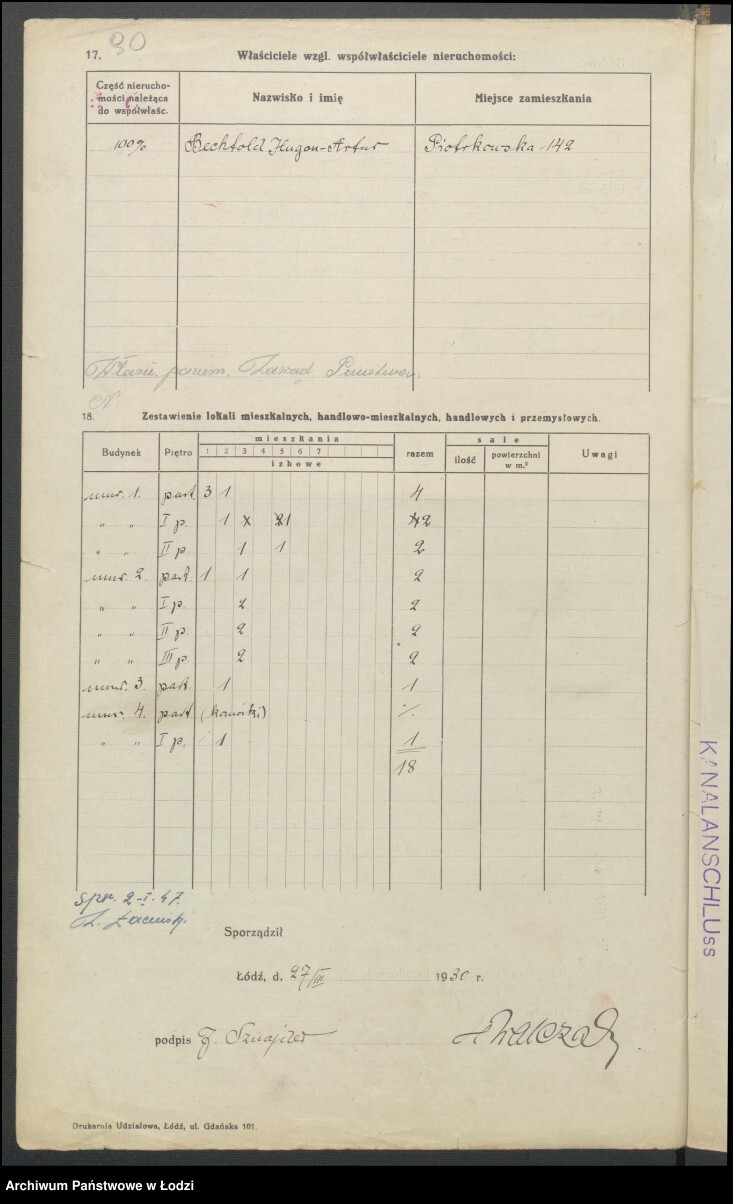 17. 90 Właściciele wzgl. współwłaściciele nieruchomości:
Część nierucho-
mości należąca
do współwłaśc.
Nazwisko i imię
Miejsce zamieszkania
100% Bechtold Hugon-Artur Piotrkowska 142
Zarząd Państwow.
18. Zestawienie lokali mieszkalnych, handlowo-mieszkalnych, handlowych i przemysłowych.
Budynek Piętro mieszkania razem sale Uwagi
1 2 3 4 5 6 7
izbowe
ilość powierzchni w m.²
mur. 1. part. 3 1 4
" " I p. 1 1 2
" " II p. 1 1 2
mur. 2. part. 1 1 2
" " I p. 2 2
" " II p. 2 2
" " III p. 2 2
mur. 3. part. 1 1
mur. 4. part. (komórki) ·/.
" " I p. 1 1
18
2-I-47.
Sporządził
Łódź, d. 27/III 1930 r.
podpis J. Sznajder
Drukarnia Udziałowa, Łódź, ul. Gdańska 101.
KANALANSCHLUss
Archiwum Państwowe w Łodzi